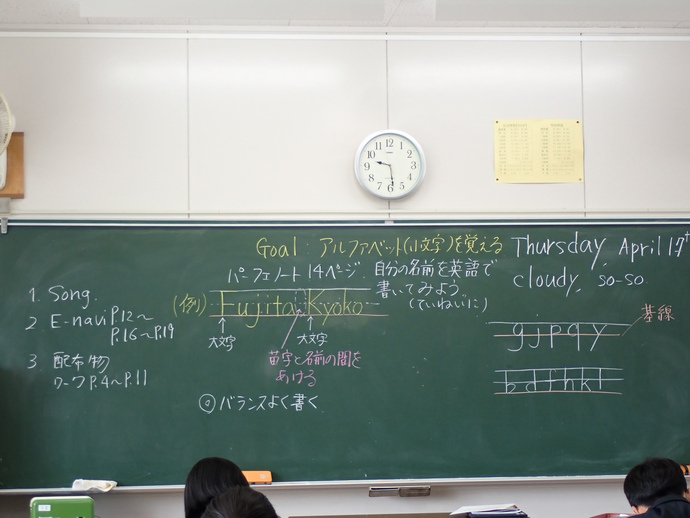 Goal: アルファベット(小文字)を覚える
Thursday, April 17th
cloudy, so-so.
パーフェノート14ページ 自分の名前を英語で
書いてみよう。
(ていねいに)
1. Song.
2. E-navi P.12〜
P.16〜P.19
3. 配布物
ワークP.4〜P.11
(例) Fujita Kyoko
大文字
大文字
苗字と名前の間を
あける
◎バランスよく書く
g j p q y
基線
b d f h k l
12
1
2
3
4
5
6
7
8
9
10
11